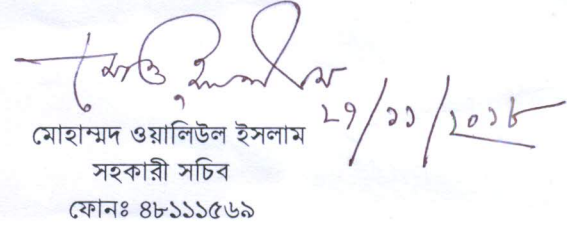 ২৭/১১/২০১৮
মোহাম্মদ ওয়ালিউল ইসলাম
সহকারী সচিব
ফোনঃ ৪৮১১১৫৬৯